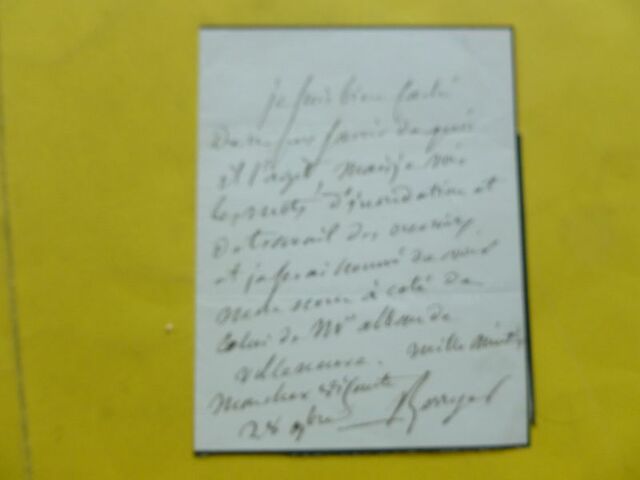 je suis bien fâché
De ne pas savoir de quoi
il s'agit, mais je vois
les mots d'inondation et
de travail des ouvriers
et je serai honoré de voir
mon nom à côté de
Celui de Mr alban de
villeneuve. mille amitiés
Mon cher Vicomte
28 9bre Berryer